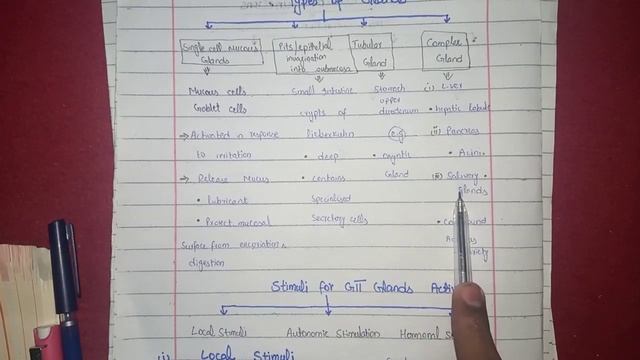 Types of Glands
Single cell mucous
Glands
Mucous cells
Goblet cells
→ Activated in response
to irritation
→ Release Mucus
• Lubricant
• Protect mucosal
Surface from excoriation &
digestion
Pits/epithelial
invagination
into submucosa
Small intestine
crypts of
Lieberkuhn
• deep
• contains
Specialized
Secretory cells
Tubular
Gland
Stomach
upper
duodenum
e.g
• oxyntic
Gland
Complex
Gland
(i) Liver
• Hepatic lobule
(ii) Pancreas
• Acini
(iii) Salivary
Glands
Stimuli for GIT Glands
Local Stimuli
Autonomic Stimulation
Hormonal
(i) Local Stimuli